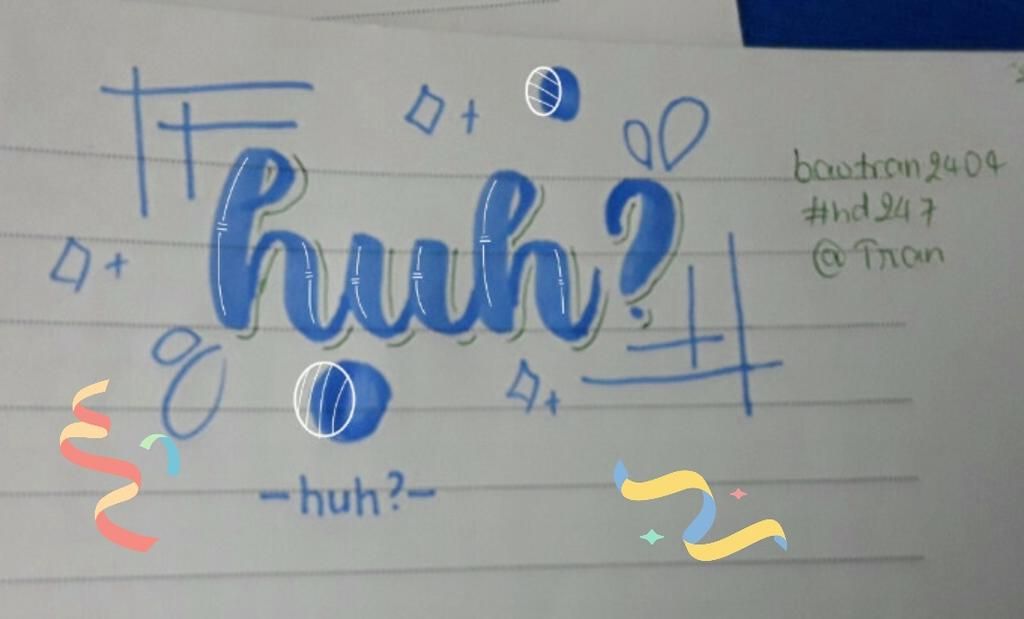 huh?
baotran2404
#hd247
@Tran
-huh?-